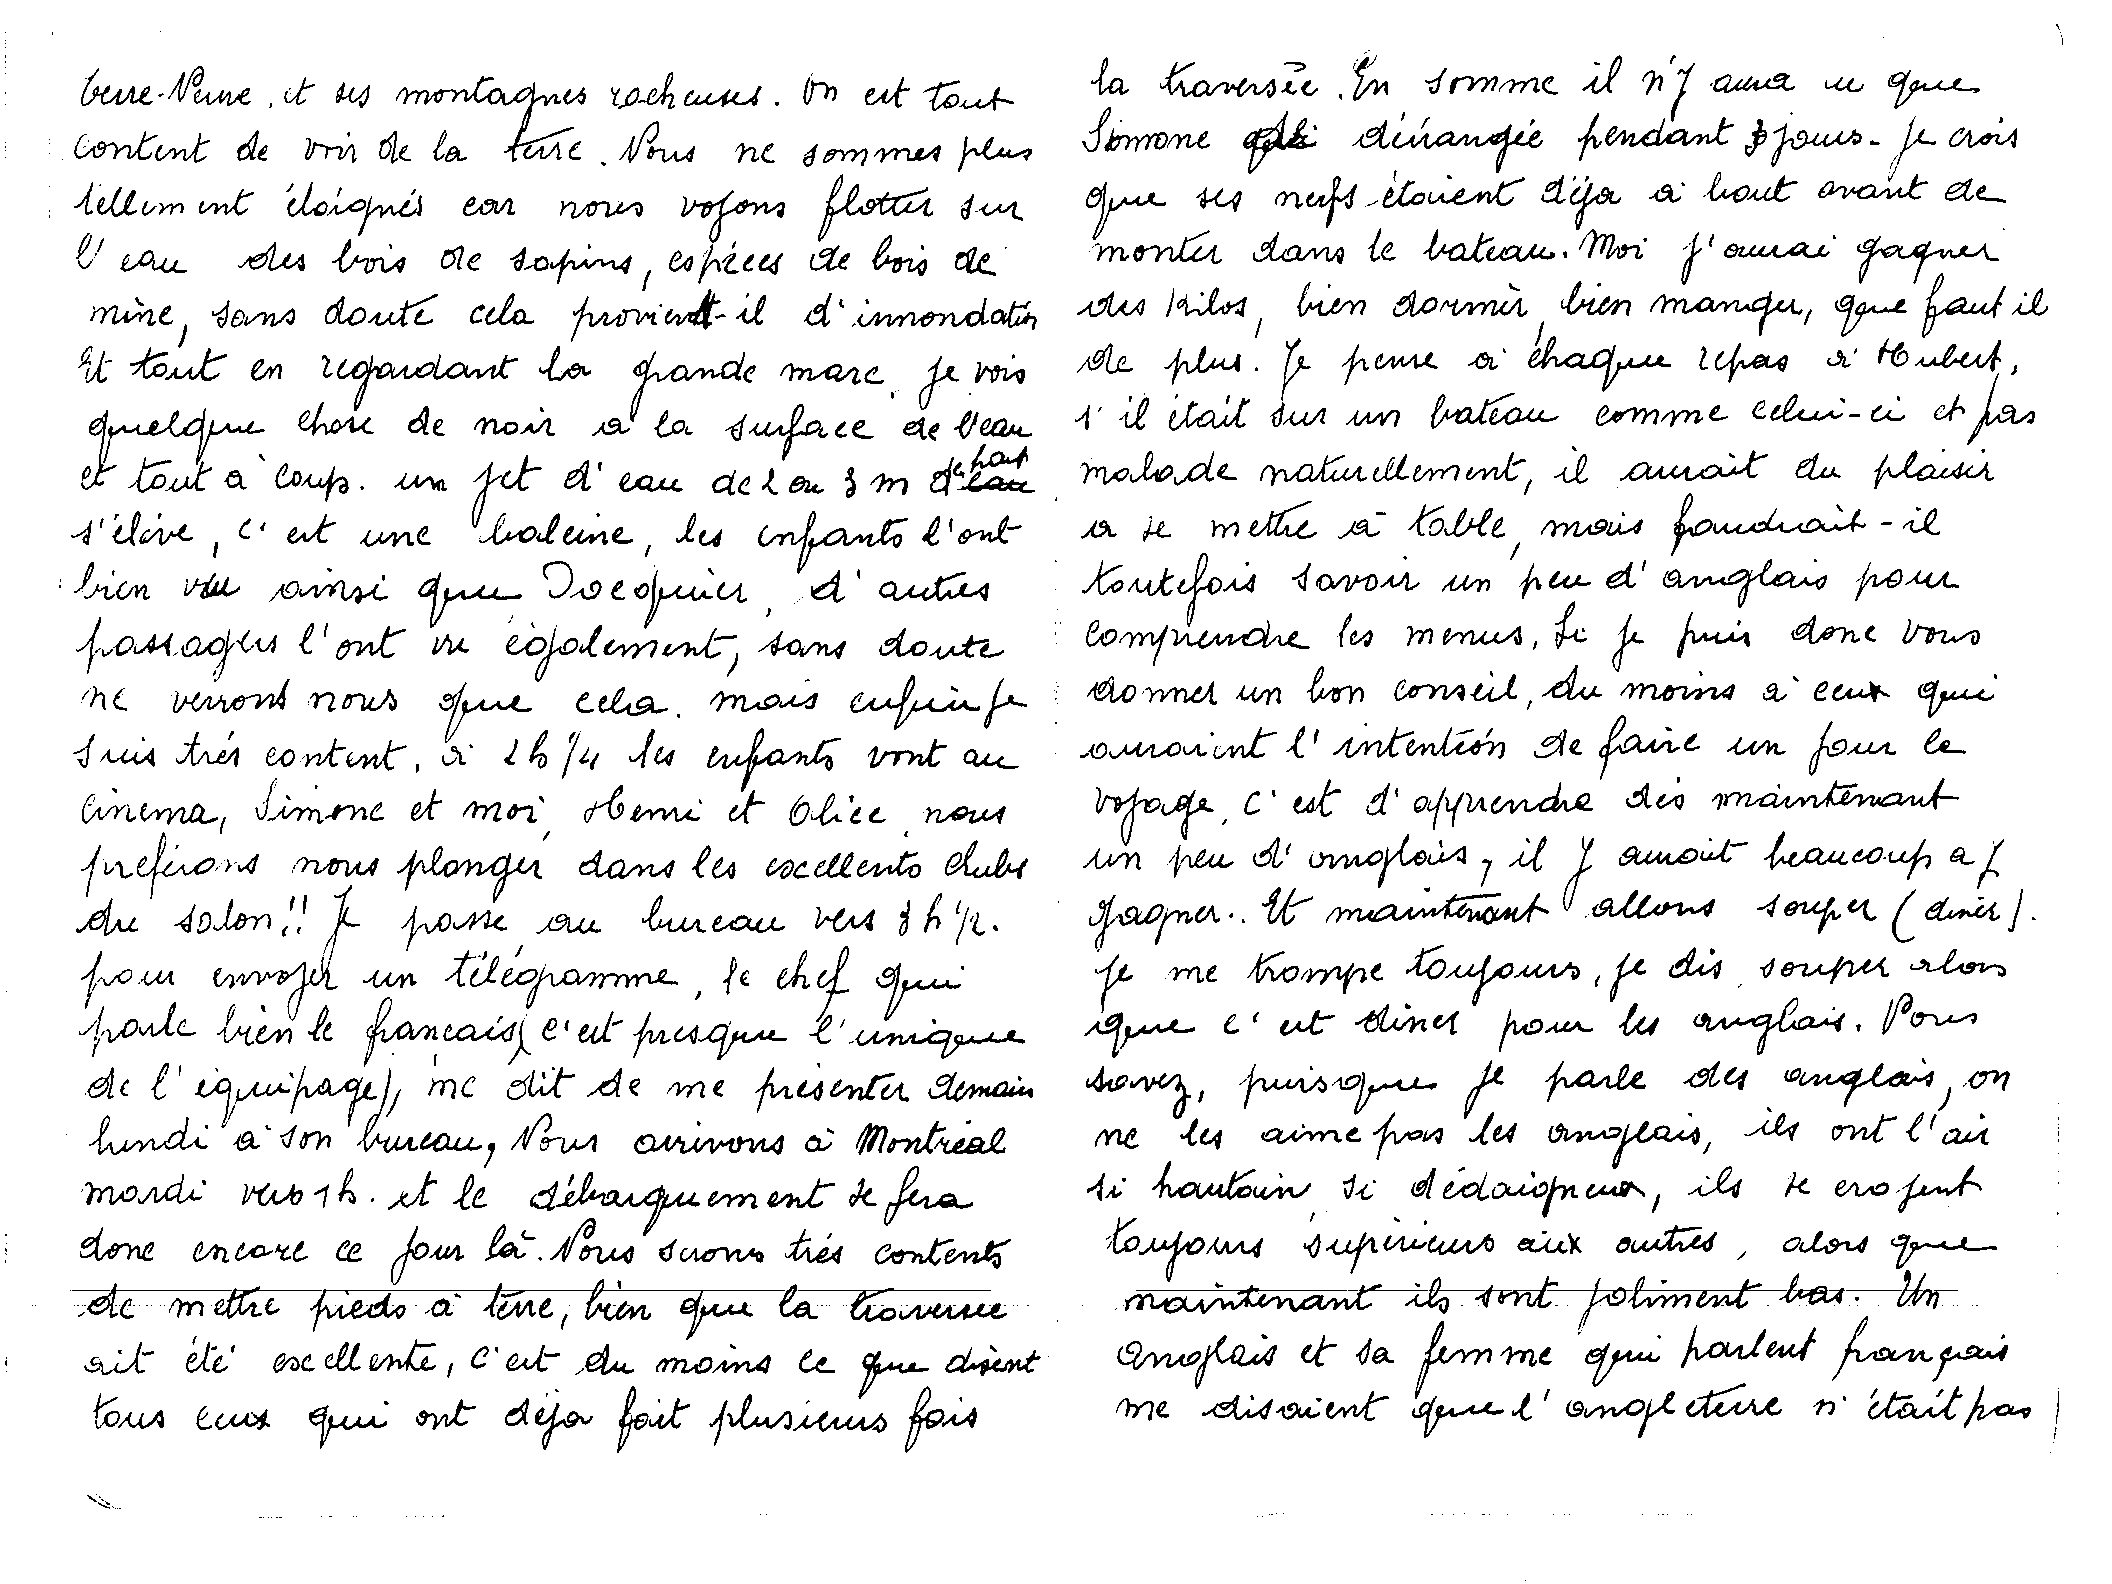 terre-Neuve, et ses montagnes rocheuses. On est tout
content de voir de la terre. Nous ne sommes plus
tellement éloignés car nous voyons flotter sur
l'eau des bois de sapins, espèces de bois de
mine, sans doute cela provient-il d'innondation
Et tout en regardant la grande mare, je vois
quelque chose de noir à la surface de l'eau
et tout à coup. un jet d'eau de 2 ou 3 m de haut
s'élève, c'est une baleine, les enfants l'ont
bien vu ainsi que Docquier, d'autres
passagers l'ont vu également, sans doute
ne verrons nous que cela. mais enfin je
suis très content, à 2 h 1/4 les enfants vont au
cinema, Simone et moi, Henri et Alice, nous
préférons nous plonger dans les excellents clubs
du salon!! Je passe au bureau vers 3 h 1/2.
pour envoyer un télégramme, le chef qui
parle bien le francais (c'est presque l'unique
de l'équipage), me dit de me présenter demain
lundi à son bureau, Nous arrivons à Montréal
mardi vers 1h. et le débarquement se fera
donc encore ce jour là. Nous serons très contents
de mettre pieds à terre, bien que la traversée
ait été excellente, c'est du moins ce que disent
tous ceux qui ont déja fait plusieurs fois
la traversée. En somme il n'y aura eu que
Simone dérangée pendant 3 jours. Je crois
que ses nerfs étaient déja à bout avant de
monter dans le bateau. Moi j'aurai gagner
des kilos, bien dormir, bien manger, que faut il
de plus. Je pense à chaque repas à Hubert,
s'il était sur un bateau comme celui-ci et pas
malade naturellement, il aurait du plaisir
a se mettre à table, mais faudrait-il
toutefois savoir un peu d'anglais pour
comprendre les menus, Si je puis donc vous
donner un bon conseil, du moins à ceux qui
auraient l'intention de faire un jour le
voyage, c'est d'apprendre dès maintenant
un peu d'anglais, il y aurait beaucoup a y
gagner.. Et maintenant allons souper (diner).
je me trompe toujours, je dis souper alors
que c'est diner pour les anglais. Vous
savez, puisque je parle des anglais, on
ne les aime pas les anglais, ils ont l'air
si hautain, si dédaigneux, ils se croyent
toujours supérieurs aux autres, alors que
maintenant ils sont joliment bas. Un
Anglais et sa femme qui parlent français
me disaient que l'angleterre n'était pas